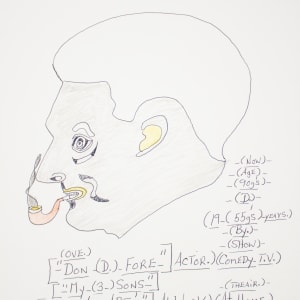 -(NOW)-
-(Age)-
-(90gs)-
-(D.)-
(19-(55gs)-years.)
-(By.)-
-(SHOW)-
(OVE.)
["DON-(D.)-FORE"] ACTOR.)(COMEDY-T.V.)
["My-(3)-SONS"
-(THEAIR.)-